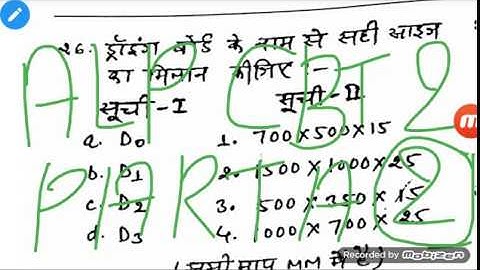 26. ड्रॉइंग बोर्ड के नाम से सही साइज
का मिलान कीजिए :-
सूची-I सूची-II
a. D0 1. 700×500×15
b. D1 2. 1500×1000×25
c. D2 3. 500×350×15
d. D3 4. 1000×700×25
(सभी माप MM में हैं)
ALP CBT 2
PART A 2
Recorded by
Mobizen